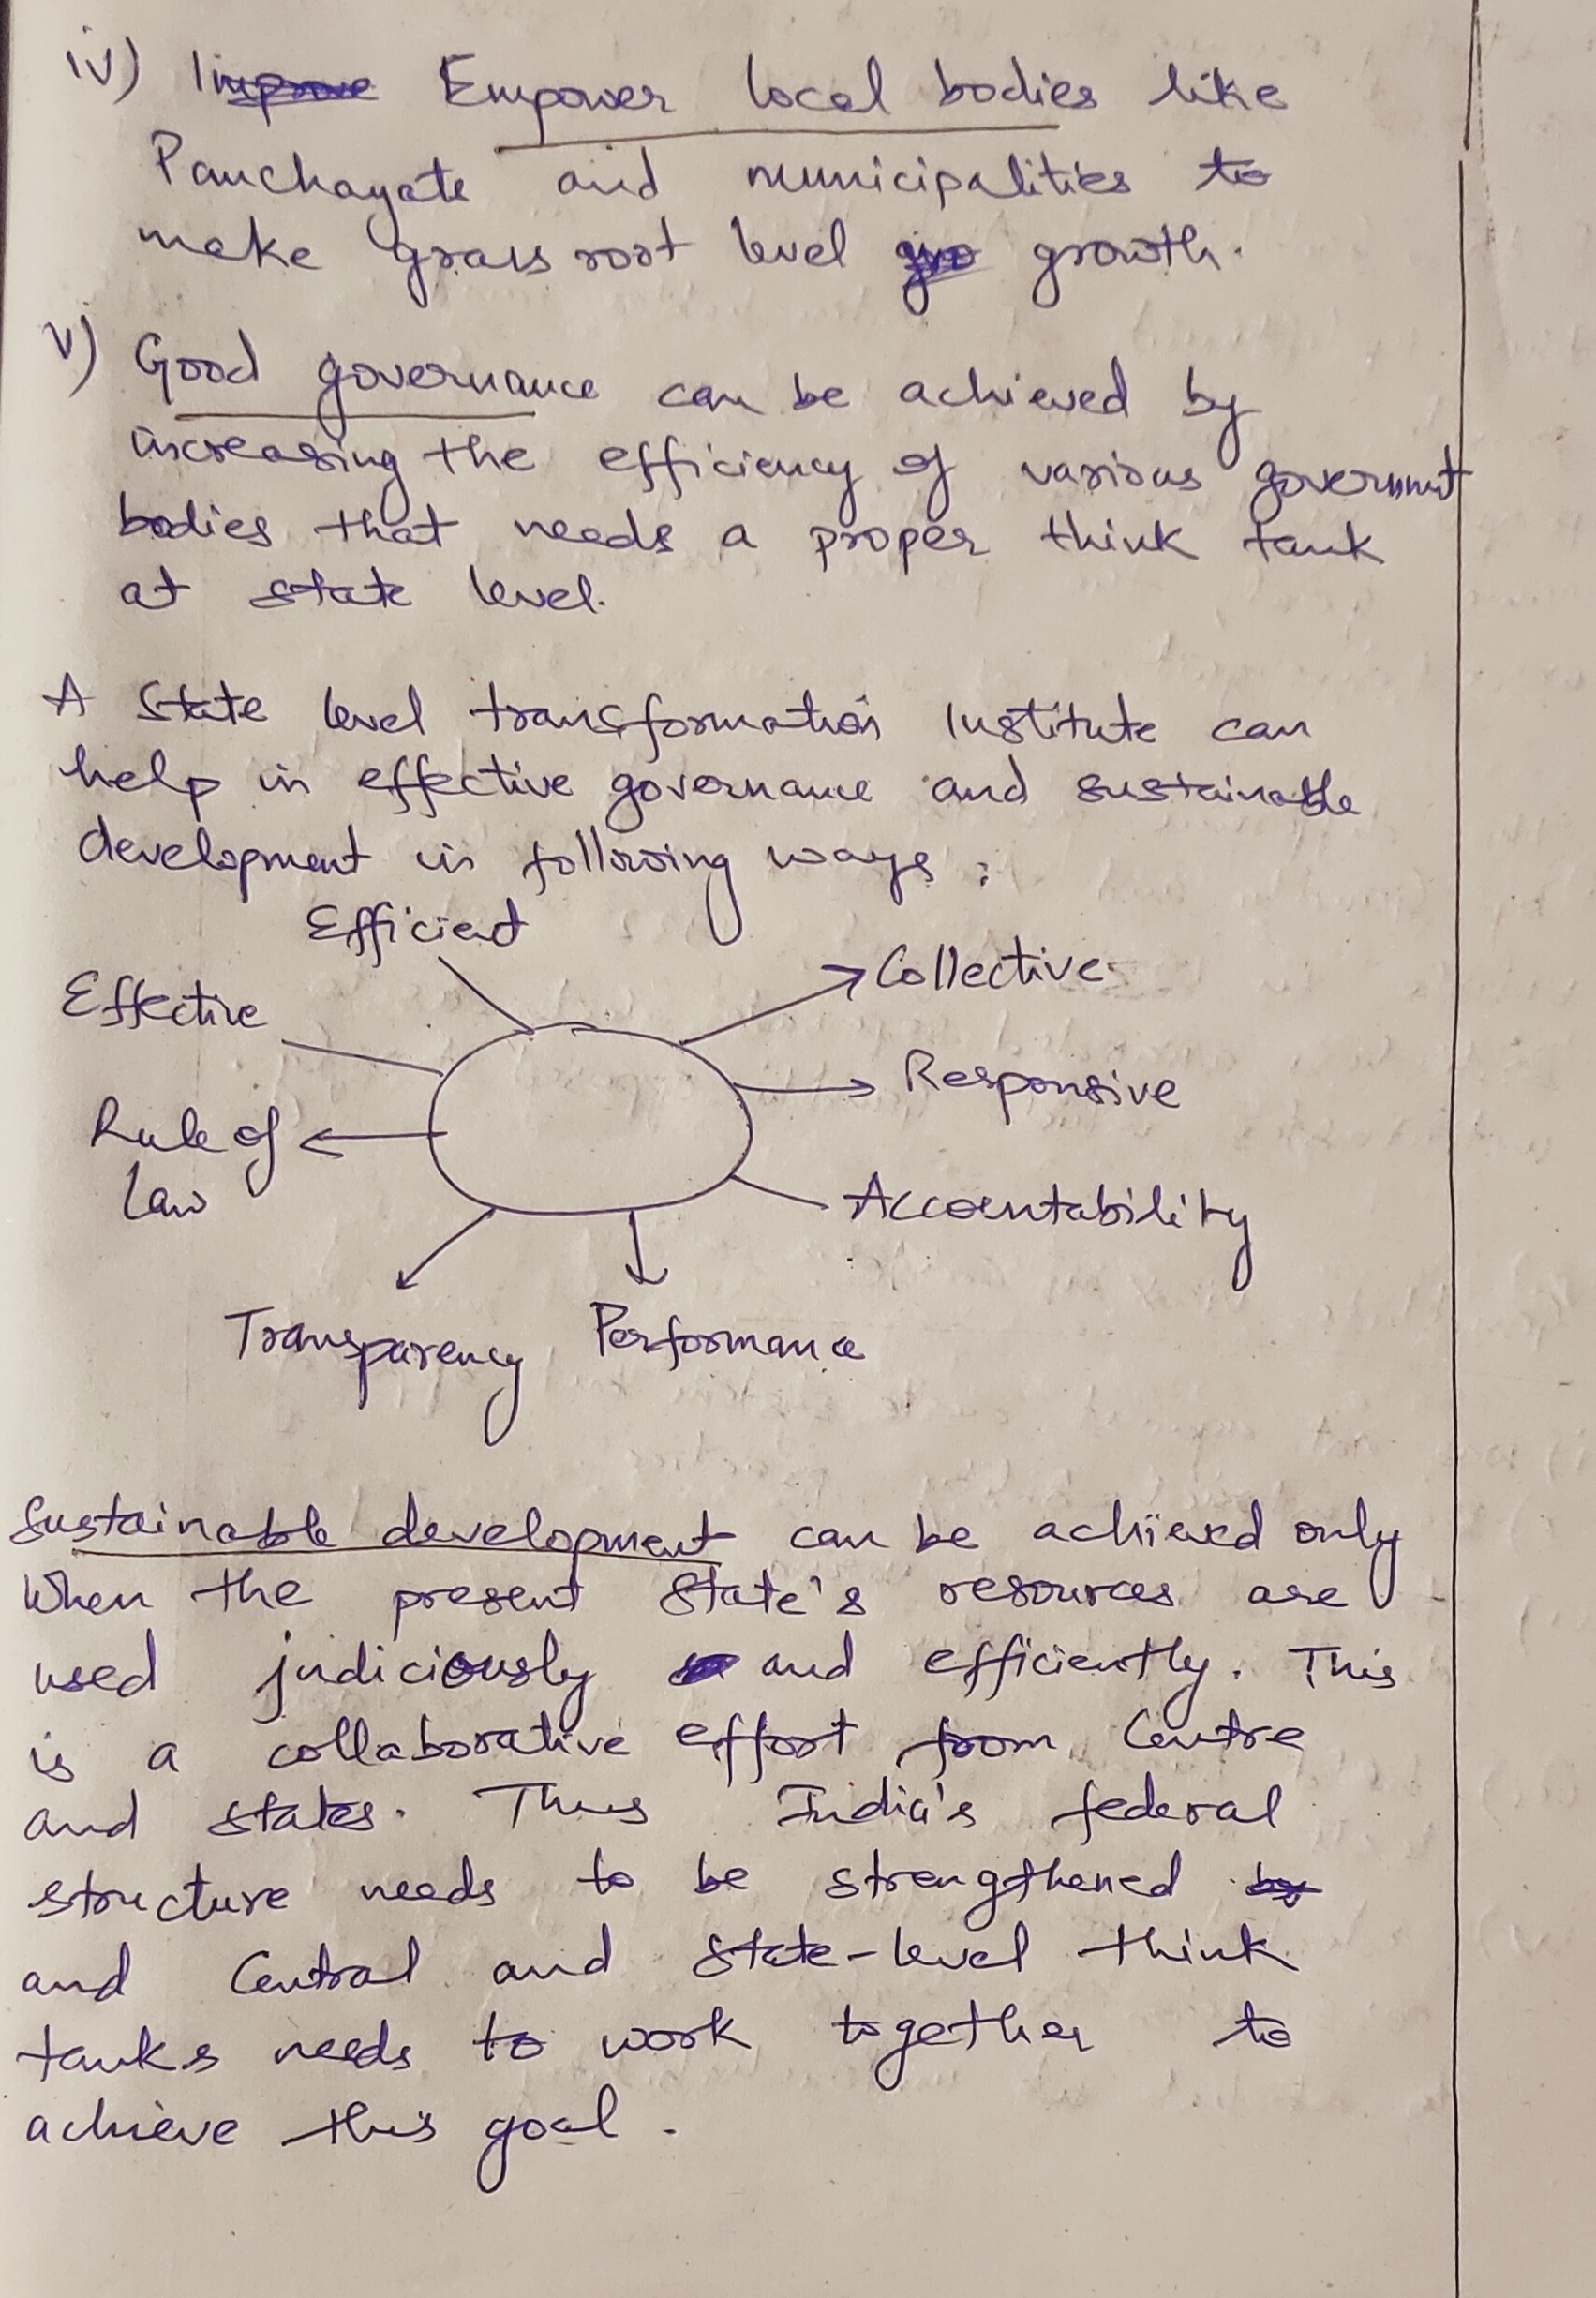 iv) Improve Empower local bodies like
Panchayate and municipalities to
make grass root level gro growth.
v) Good governance can be achieved by
increasing the efficiency of various government
bodies that needs a proper think tank
at state level.
A State level transformation Institute can
help in effective governance and sustainable
development in following ways :
Efficient
Effective
Collective
Responsive
Rule of
Law
Accountability
Transparency
Performance
Sustainable development can be achieved only
When the present State's resources are
used judiciously and efficiently. This
is a collaborative effort from Centre
and states. Thus India's federal
structure needs to be strengthened by
and Central and State-level think
tanks needs to work together to
achieve this goal.